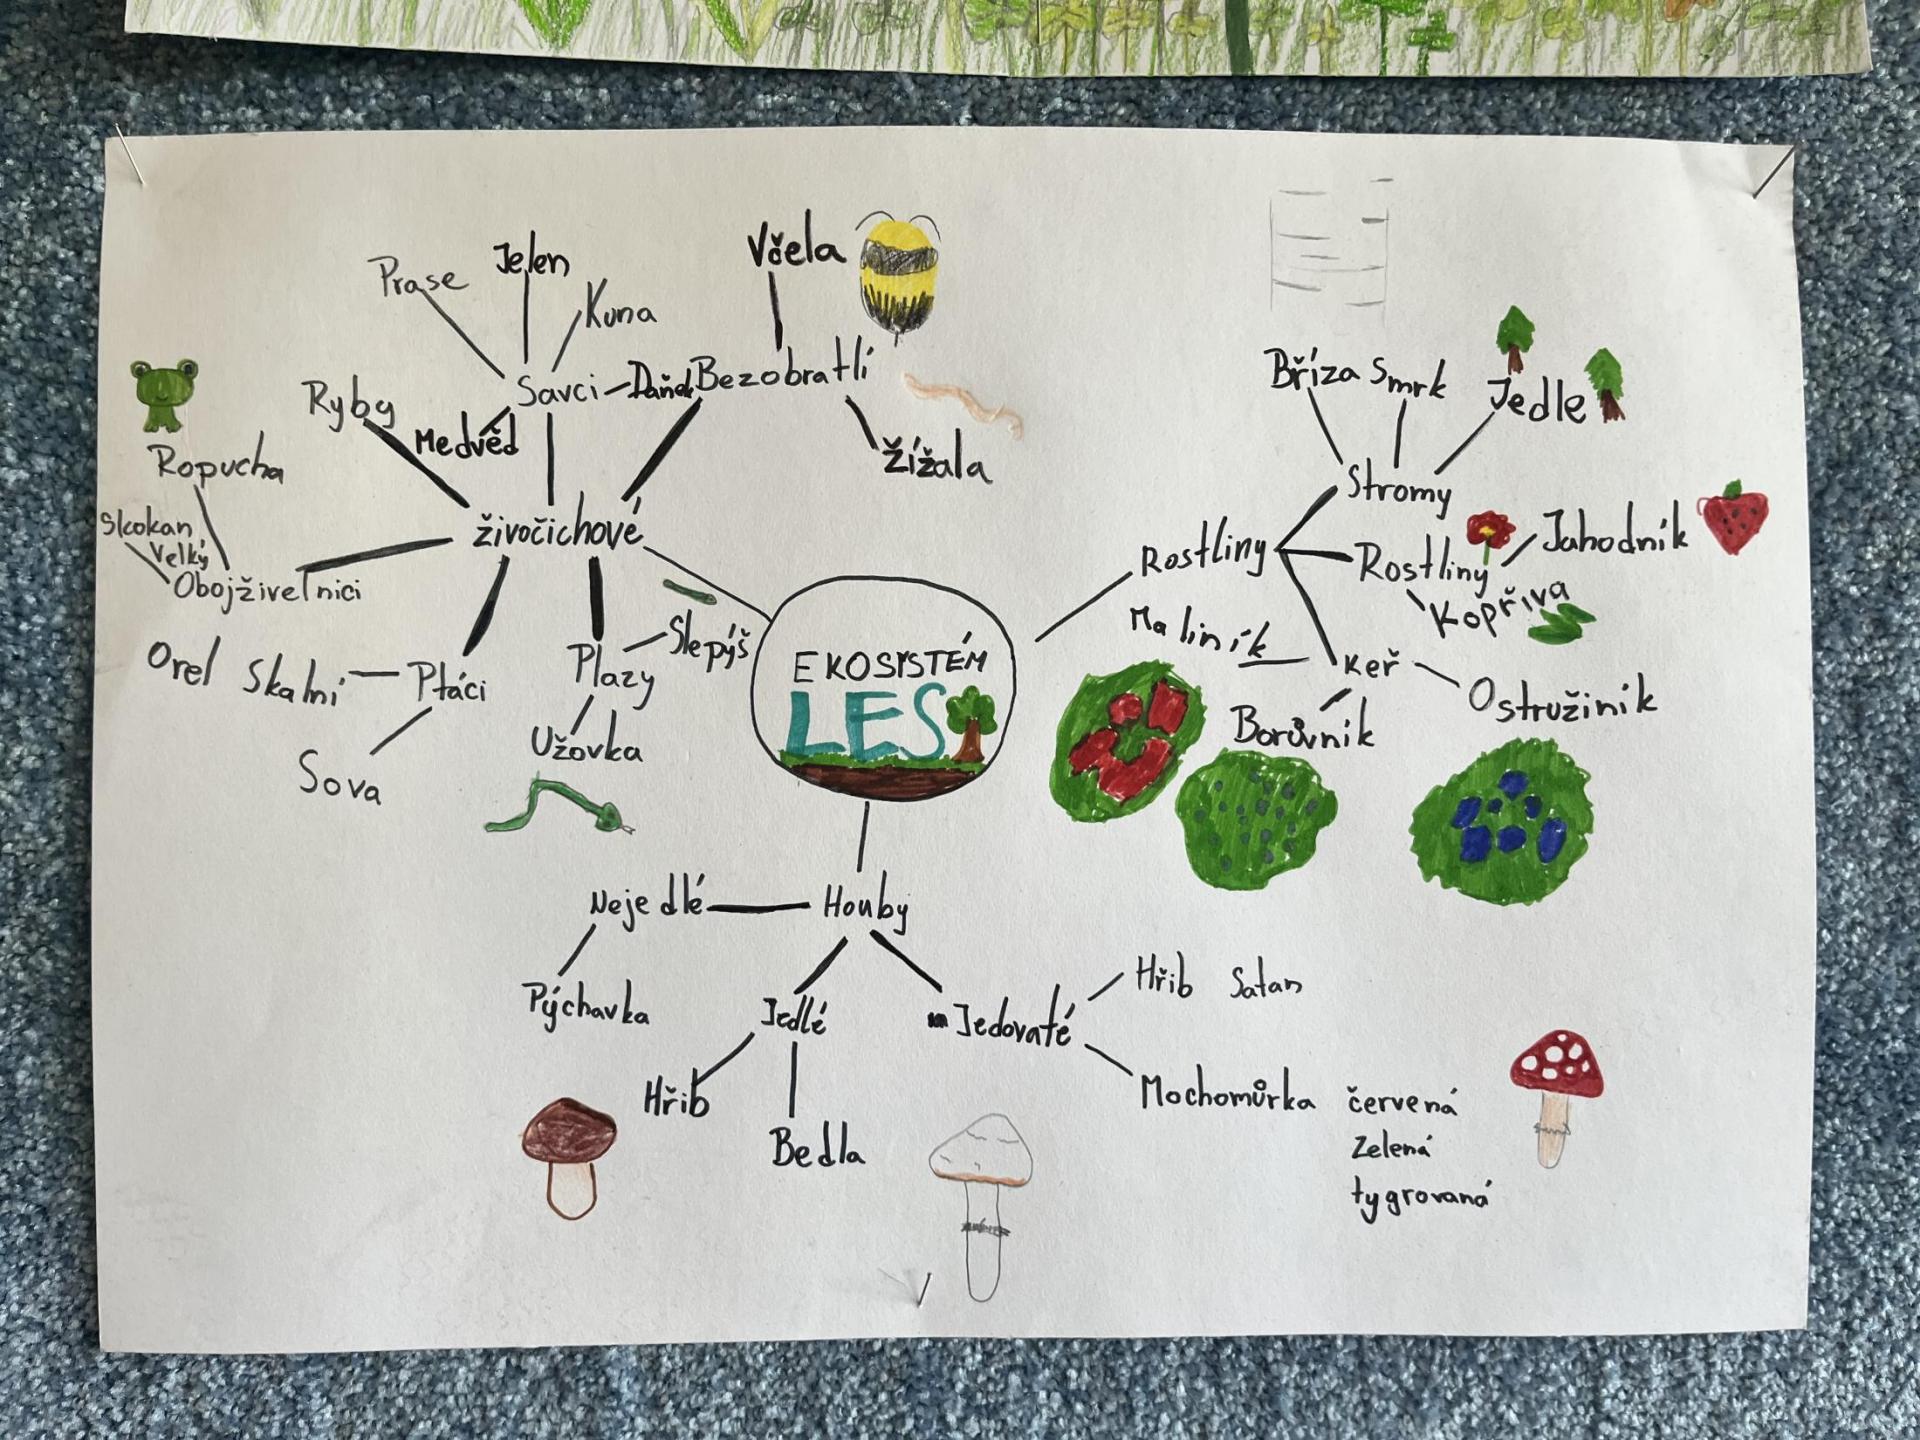 Včela
Prase
Jelen
Kuna
Savci
Daněk
Bezobratlí
Ryby
Medvěd
Žížala
Ropucha
Skokan
Velký
Obojživelníci
živočichové
Orel Skalní
Ptáci
Sova
Plazy
Slepýš
Užovka
EKOSYSTÉM
LES
Rostliny
Bříza
Smrk
Jedle
Stromy
Rostliny
Jahodník
Kopřiva
Maliník
Keř
Borůvník
Ostružiník
Houby
Nejedlé
Pýchavka
Jedlé
Hřib
Bedla
Jedovaté
Hřib Satan
Mochomůrka červená
Zelená
tygrovaná